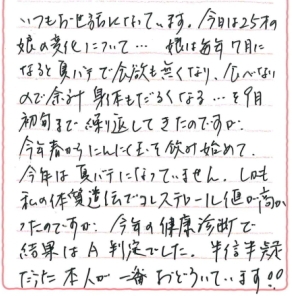 いつもお世話になっています。今日は25才の
娘の変化について… 娘は毎年7月に
なると夏バテで食欲も無くなり、食べない
ので余計身体もだるくなる…を9月
初旬まで繰り返してきたのですが、
今年春からにんにく玉を飲み始めて、
今年は夏バテになっていません。しかも
私の体質遺伝でコレステロール値が高か
ったのですが、今年の健康診断で
結果はA判定でした。半信半疑
だった本人が一番おどろいています!!